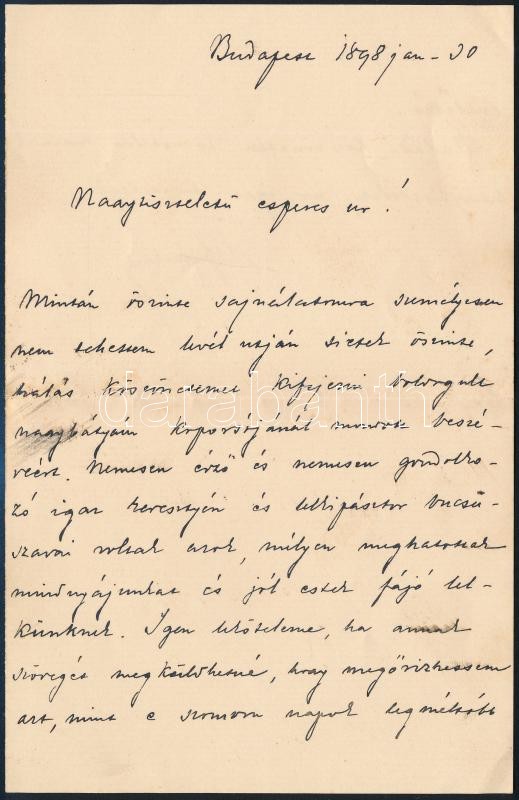 Budapest 1898 jan - 30
Nagytiszteletű esperes ur!
Miután őszinte sajnálatomra személyesen
nem tehettem levél utján sietek őszinte,
hálás köszönetemet kifejezni boldogult
nagybátyám koporsójánál mondott beszé-
déért. Nemesen érző és nemesen gondolko-
zó igaz keresztyén és lelkipásztor bucsú-
szavai voltak azok, mélyen meghatottak
mindnyájunkat és jól estek fájó lel-
künknek. Igen lekötelezne, ha annak
szövegét megküldhetné, hogy megőrizhessem
azt, mint e szomoru napok legméltóbb
darabanth